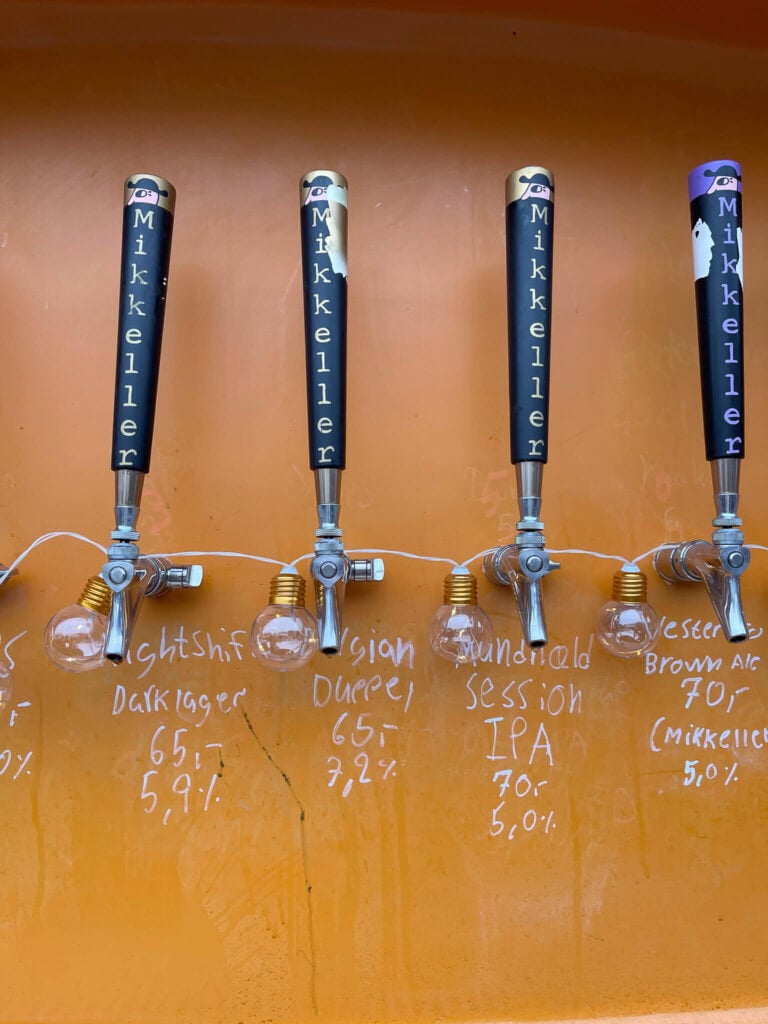 Mikkeller
Mikkeller
Mikkeller
Mikkeller
ightshif
Darklager
65,-
5,9%
gian
Duppel
65,-
7,2%
Session
IPA
70,-
5,0%
Vester
Brown Ale
70,-
(Mikkeller
5,0%